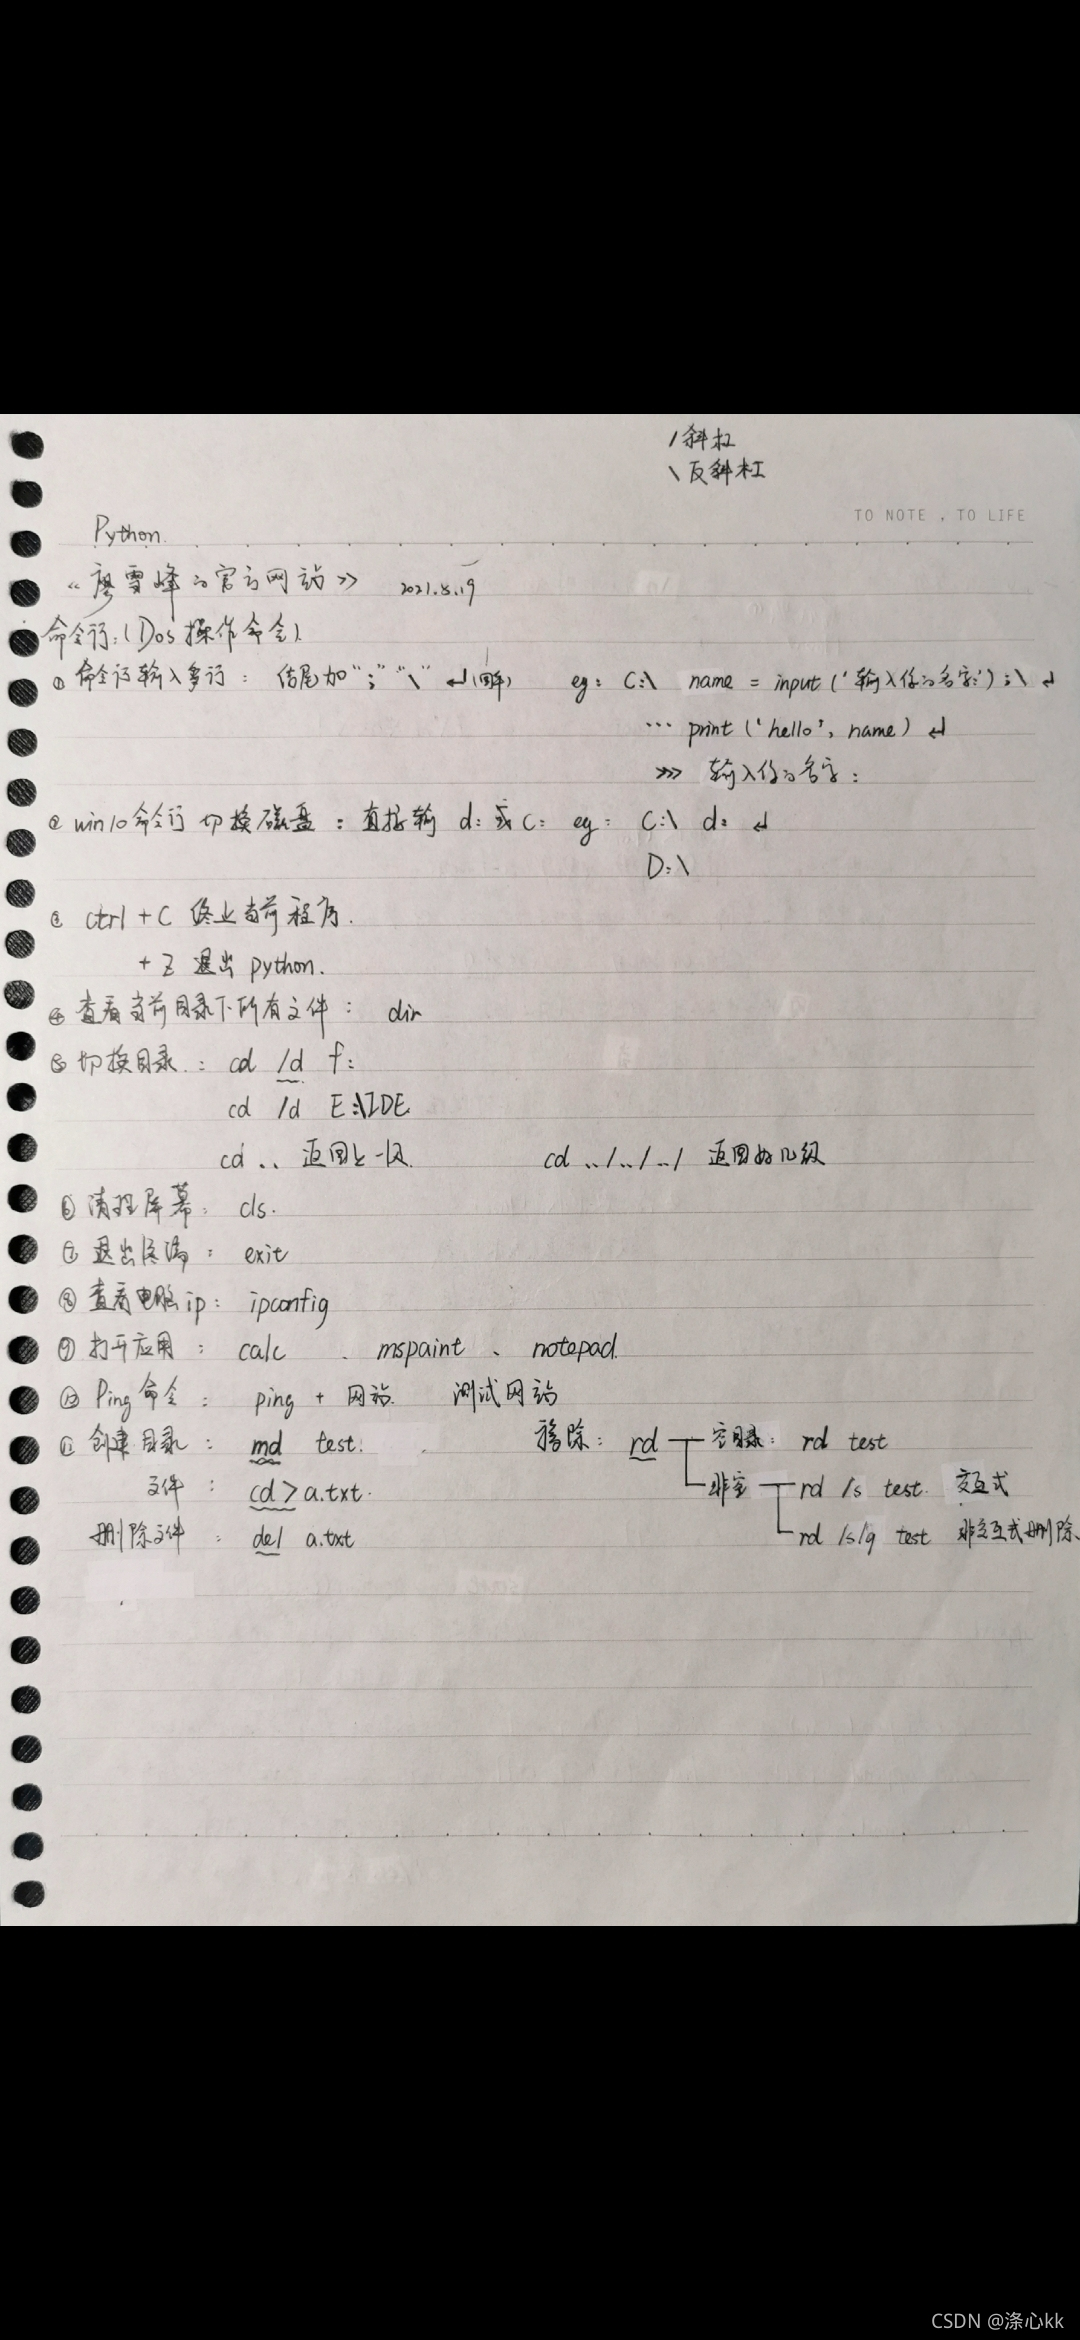 /斜杠
\反斜杠
TO NOTE , TO LIFE
Python.
《廖雪峰的官方网站》 2021.8.19
命令行:(Dos操作命令).
① 命令行输入多行: 结尾加“;”“\” ↲(回车) eg: C:\ name = input('输入你的名字:');\ ↲
... print('hello', name) ↲
>>> 输入你的名字:
② win10命令行 切换磁盘:直接输 d:或C: eg: C:\ d: ↲
D:\
③ ctrl + C 终止当前程序.
+ Z 退出 python.
④ 查看当前目录下所有文件: dir
⑤ 切换目录.: cd /d f:
cd /d E:\IDE
cd .. 返回上一级. cd ../../../ 返回好几级
⑥ 清理屏幕: cls.
⑦ 退出终端: exit
⑧ 查看电脑ip: ipconfig
⑨ 打开应用: calc 、 mspaint 、 notepad.
⑩ Ping命令: ping + 网站. 测试网站
⑪ 创建目录: md test. 移除: rd 空目录: rd test
文件: cd>a.txt. 非空 rd /s test. 交互式
删除文件: del a.txt rd /s/q test 非交互式删除.
CSDN @涤心kk